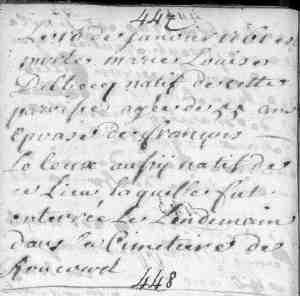 447
Le 10 de Janvier
morte marie Louise
Dubocq natif de cette
paroisse agée de 55 ans
Epouse de françois
Le Loux aussi natif de
ce Lieu laquelle fut
enterrée Le Lendemain
dans le Cimetiere de
Roucourt
448